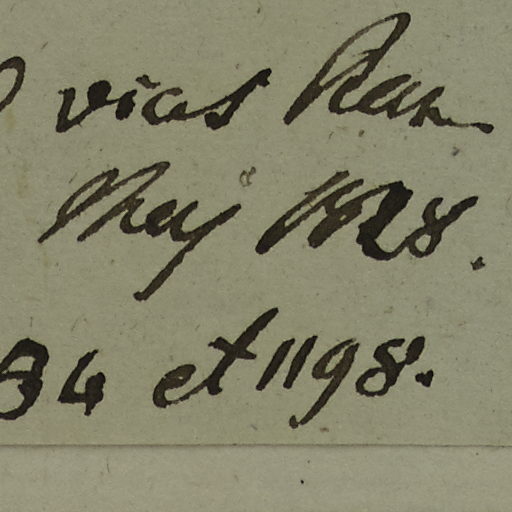 vias Ram
Maj 1828.
34 et 1198.